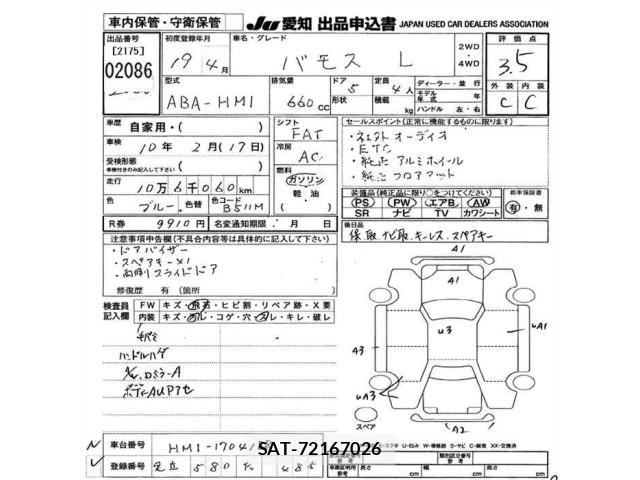 車内保管・守衛保管
JU 愛知 出品申込書 JAPAN USED CAR DEALERS ASSOCIATION
出品番号 [2175] 02086
初度登録年月 19年 4月
車名・グレード バモス L
2WD・4WD
評価点 3.5
型式 ABA-HM1
排気量 660cc
ドア 5
形状
定員 4人
積載 kg
ディーラー・並行
モデル年式 年
ハンドル 左・右
外装 C
内装 C
車歴 自家用・( )
車検 10年 2月 (17日)
受検形態
車検付きのみ記入して下さい ( )
走行 10万6千060km
色 ブルー
色替
色コード B511M
R券 9910円
名変通知期限 月 日
シフト FAT
冷房 AC
燃料 ガソリン 軽・油
セールスポイント (正常に機能するものに限ります)
・ネェクトオーディオ
・ETC
・純正アルミホイール
・純正フロアマット
装備品 (純正品に限り○をつけてください)
PS PW エアB AW
SR ナビ TV カワシート
新車保証書 有・無
後日品
保、取、ナビ取、キーレス、スペアキー
注意事項申告欄 (不具合内容等は具体的に記入して下さい)
・ドアバイザー
・スペアキー×1
・両側スライドドア
修復歴 有 (箇所 )
検査員記入欄
FW キズ・飛石・ヒビ割・リペア跡・X要
内装 キズ・ヨレ・コゲ・穴・スレ・キレ・破レ
ハンドルハゲ
ボディーAUPアセ
A1
A1
U3
UA1
A3
UA3
A2
スペア
車台番号 HM1-1704
登録番号 足立 580 485
SAT-72167026
長さ cm 幅 cm 高さ cm